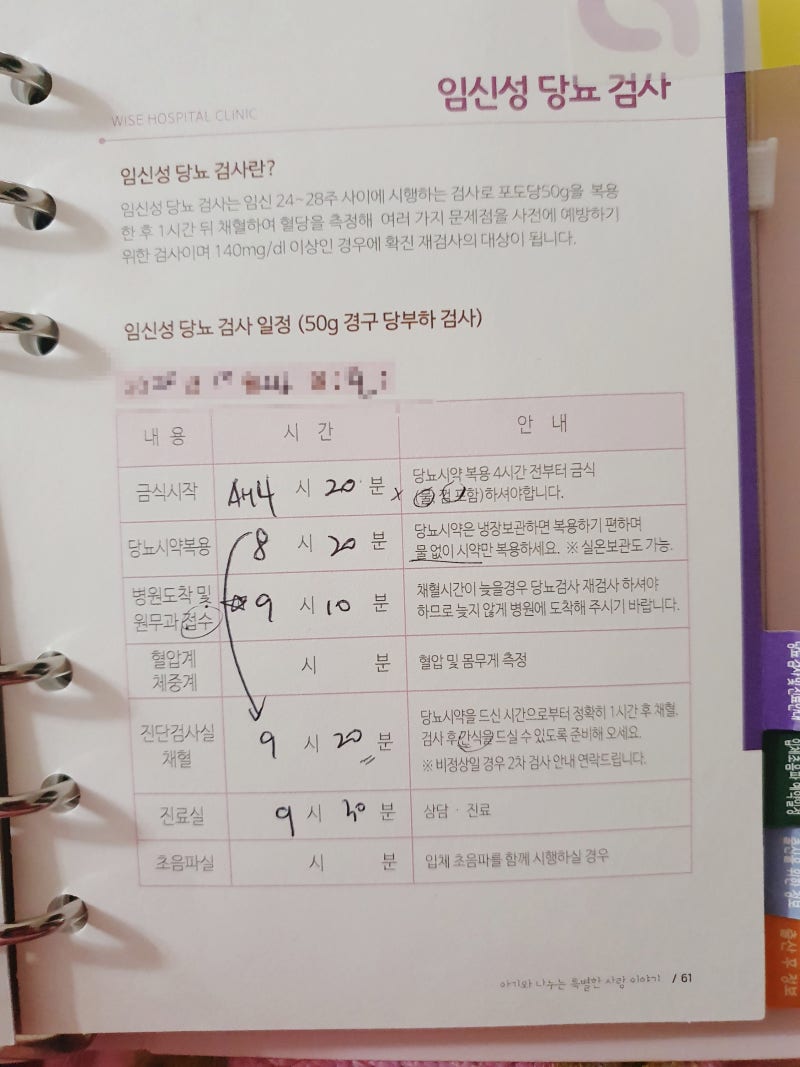 WISE HOSPITAL CLINIC
임신성 당뇨 검사
임신성 당뇨 검사란?
임신성 당뇨 검사는 임신 24~28주 사이에 시행하는 검사로 포도당50g을 복용
한 후 1시간 뒤 채혈하여 혈당을 측정해 여러 가지 문제점을 사전에 예방하기
위한 검사이며 140mg/dl 이상인 경우에 확진 재검사의 대상이 됩니다.
임신성 당뇨 검사 일정 (50g 경구 당부하 검사)
내 용 시 간 안 내
금식시작 AM4 시 20 분 당뇨시약 복용 4시간 전부터 금식
x (물, 껌 포함)하셔야합니다.
당뇨시약복용 8 시 20 분 당뇨시약은 냉장보관하면 복용하기 편하며
물 없이 시약만 복용하세요. ※ 실온보관도 가능.
병원도착 및
원무과 접수 9 시 10 분 채혈시간이 늦을경우 당뇨검사 재검사 하셔야
하므로 늦지 않게 병원에 도착해 주시기 바랍니다.
혈압계
체중계 시 분 혈압 및 몸무게 측정
진단검사실
채혈 9 시 20 분 당뇨시약을 드신 시간으로부터 정확히 1시간 후 채혈.
검사 후 간식을 드실 수 있도록 준비해 오세요.
※ 비정상일 경우 2차 검사 안내 연락드립니다.
진료실 9 시 30 분 상담 · 진료
초음파실 시 분 입체 초음파를 함께 시행하실 경우
아기와 나누는 특별한 사랑 이야기 / 61
출산 후 정보